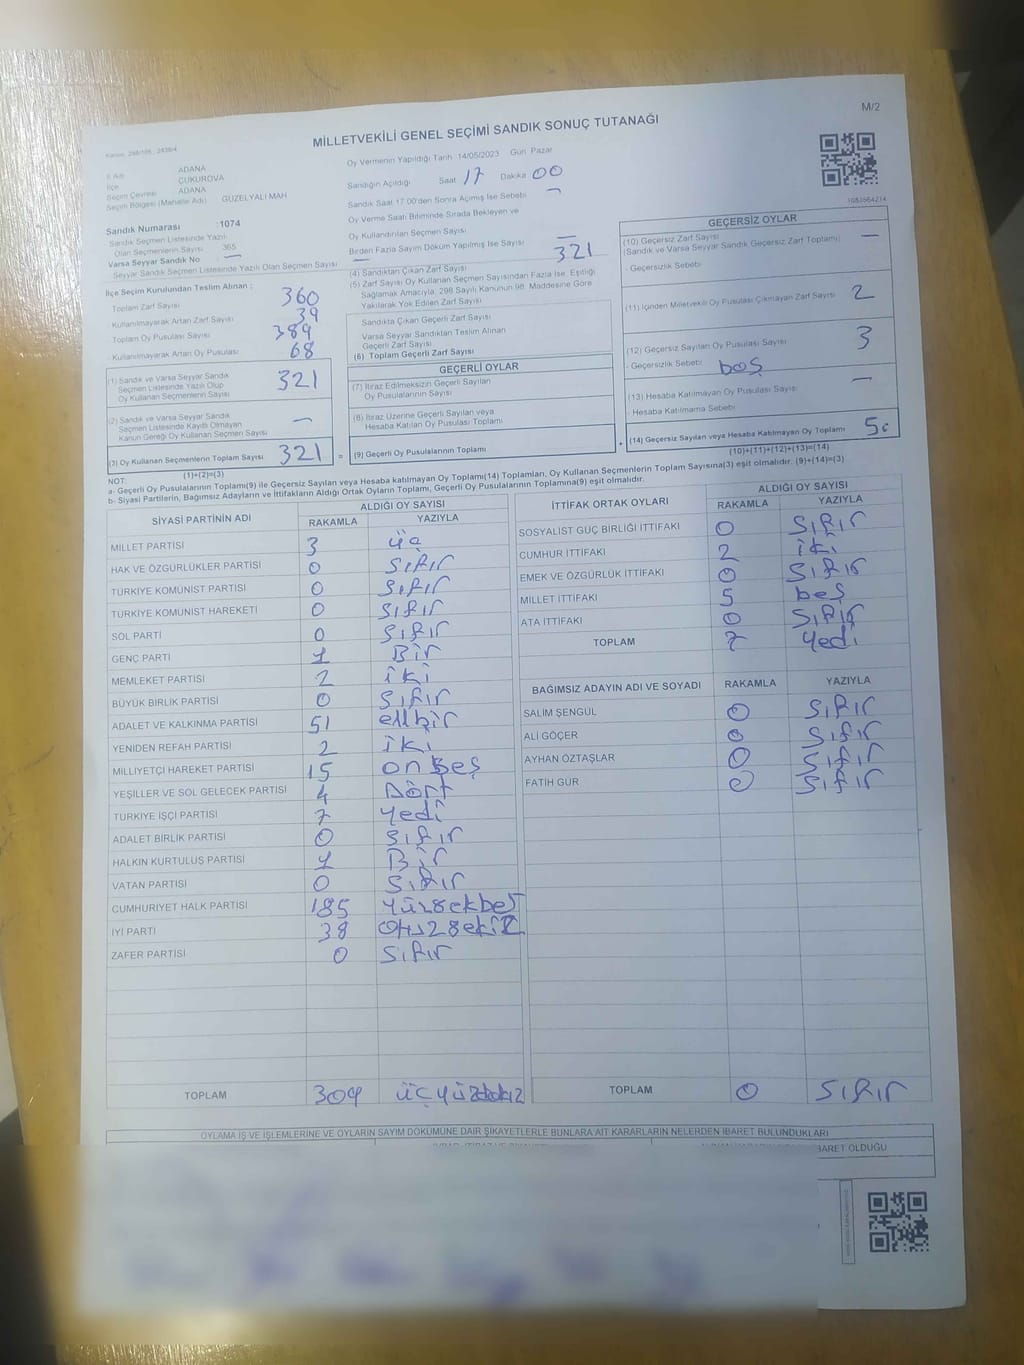 M/2
MİLLETVEKİLİ GENEL SEÇİMİ SANDIK SONUÇ TUTANAĞI
Oy Vermenin Yapıldığı Tarih 14/05/2023 Gün Pazar
İl Adı ADANA
İlçe ÇUKUROVA
Seçim Çevresi ADANA
Seçim Bölgesi (Mahalle Adı) GÜZELYALI MAH
Sandığın Açıldığı Saat 17 Dakika 00
Sandık Saat 17.00'den Sonra Açılmış İse Sebebi —
Oy Verme Saati Bitiminde Sırada Bekleyen ve
Oy Kullandırılan Seçmen Sayısı —
Birden Fazla Sayım Döküm Yapılmış İse Sayısı —
1083564214
Sandık Numarası :1074
Sandık Seçmen Listesinde Yazılı
Olan Seçmenlerin Sayısı 365
Varsa Seyyar Sandık No —
Seyyar Sandık Seçmen Listesinde Yazılı Olan Seçmen Sayısı —
İlçe Seçim Kurulundan Teslim Alınan ;
Toplam Zarf Sayısı 360
Kullanılmayarak Artan Zarf Sayısı 39
Toplam Oy Pusulası Sayısı 389
- Kullanılmayarak Artan Oy Pusulası 68
(1) Sandık ve Varsa Seyyar Sandık
Seçmen Listesinde Yazılı Olup
Oy Kullanan Seçmenlerin Sayısı 321
(2) Sandık ve Varsa Seyyar Sandık
Seçmen Listesinde Kayıtlı Olmayan
Kanun Gereği Oy Kullanan Seçmen Sayısı —
(3) Oy Kullanan Seçmenlerin Toplam Sayısı 321 =
(1)+(2)=(3)
(4) Sandıktan Çıkan Zarf Sayısı 321
(5) Zarf Sayısı Oy Kullanan Seçmen Sayısından Fazla İse, Eşitliği
Sağlamak Amacıyla, 298 Sayılı Kanunun 98. Maddesine Göre
Yakılarak Yok Edilen Zarf Sayısı
Sandıkta Çıkan Geçerli Zarf Sayısı
Varsa Seyyar Sandıktan Teslim Alınan
Geçerli Zarf Sayısı
(6) Toplam Geçerli Zarf Sayısı
GEÇERLİ OYLAR
(7) İtiraz Edilmeksizin Geçerli Sayılan
Oy Pusulalarının Sayısı
(8) İtiraz Üzerine Geçerli Sayılan veya
Hesaba Katılan Oy Pusulası Toplamı
(9) Geçerli Oy Pusulalarının Toplamı +
GEÇERSİZ OYLAR
(10) Geçersiz Zarf Sayısı —
(Sandık ve Varsa Seyyar Sandık Geçersiz Zarf Toplamı)
- Geçersizlik Sebebi:
(11) İçinden Milletvekili Oy Pusulası Çıkmayan Zarf Sayısı 2
(12) Geçersiz Sayılan Oy Pusulası Sayısı 3
- Geçersizlik Sebebi: boş
(13) Hesaba Katılmayan Oy Pusulası Sayısı —
- Hesaba Katılmama Sebebi:
(14) Geçersiz Sayılan veya Hesaba Katılmayan Oy Toplamı 5
(10)+(11)+(12)+(13)=(14)
NOT:
a- Geçerli Oy Pusulalarının Toplamı(9) ile Geçersiz Sayılan veya Hesaba katılmayan Oy Toplamı(14) Toplamları, Oy Kullanan Seçmenlerin Toplam Sayısına(3) eşit olmalıdır. (9)+(14)=(3)
b- Siyasi Partilerin, Bağımsız Adayların ve İttifakların Aldığı Ortak Oyların Toplamı, Geçerli Oy Pusulalarının Toplamına(9) eşit olmalıdır.
SİYASİ PARTİNİN ADI ALDIĞI OY SAYISI
RAKAMLA YAZIYLA
MİLLET PARTİSİ 3 üç
HAK VE ÖZGÜRLÜKLER PARTİSİ 0 sıfır
TÜRKİYE KOMÜNİST PARTİSİ 0 sıfır
TÜRKİYE KOMÜNİST HAREKETİ 0 sıfır
SOL PARTİ 0 sıfır
GENÇ PARTİ 1 Bir
MEMLEKET PARTİSİ 2 iki
BÜYÜK BİRLİK PARTİSİ 0 sıfır
ADALET VE KALKINMA PARTİSİ 51 ellbir
YENİDEN REFAH PARTİSİ 2 iki
MİLLİYETÇİ HAREKET PARTİSİ 15 onbeş
YEŞİLLER VE SOL GELECEK PARTİSİ 4 Dört
TÜRKİYE İŞÇİ PARTİSİ 7 yedi
ADALET BİRLİK PARTİSİ 0 sıfır
HALKIN KURTULUŞ PARTİSİ 1 Bir
VATAN PARTİSİ 0 sıfır
CUMHURİYET HALK PARTİSİ 185 yüzsekbeş
İYİ PARTİ 38 otuzsekiz
ZAFER PARTİSİ 0 sıfır
TOPLAM 309 üçyüzdokuz
İTTİFAK ORTAK OYLARI ALDIĞI OY SAYISI
RAKAMLA YAZIYLA
SOSYALİST GÜÇ BİRLİĞİ İTTİFAKI 0 sıfır
CUMHUR İTTİFAKI 2 iki
EMEK VE ÖZGÜRLÜK İTTİFAKI 0 sıfır
MİLLET İTTİFAKI 5 beş
ATA İTTİFAKI 0 sıfır
TOPLAM 7 yedi
BAĞIMSIZ ADAYIN ADI VE SOYADI RAKAMLA YAZIYLA
SALİM ŞENGÜL 0 sıfır
ALİ GÖÇER 0 sıfır
AYHAN ÖZTAŞLAR 0 sıfır
FATİH GÜR 0 sıfır
TOPLAM 0 sıfır
OYLAMA İŞ VE İŞLEMLERİNE VE OYLARIN SAYIM DÖKÜMÜNE DAİR ŞİKAYETLERLE BUNLARA AİT KARARLARIN NELERDEN İBARET BULUNDUKLARI
BARET OLDUĞU